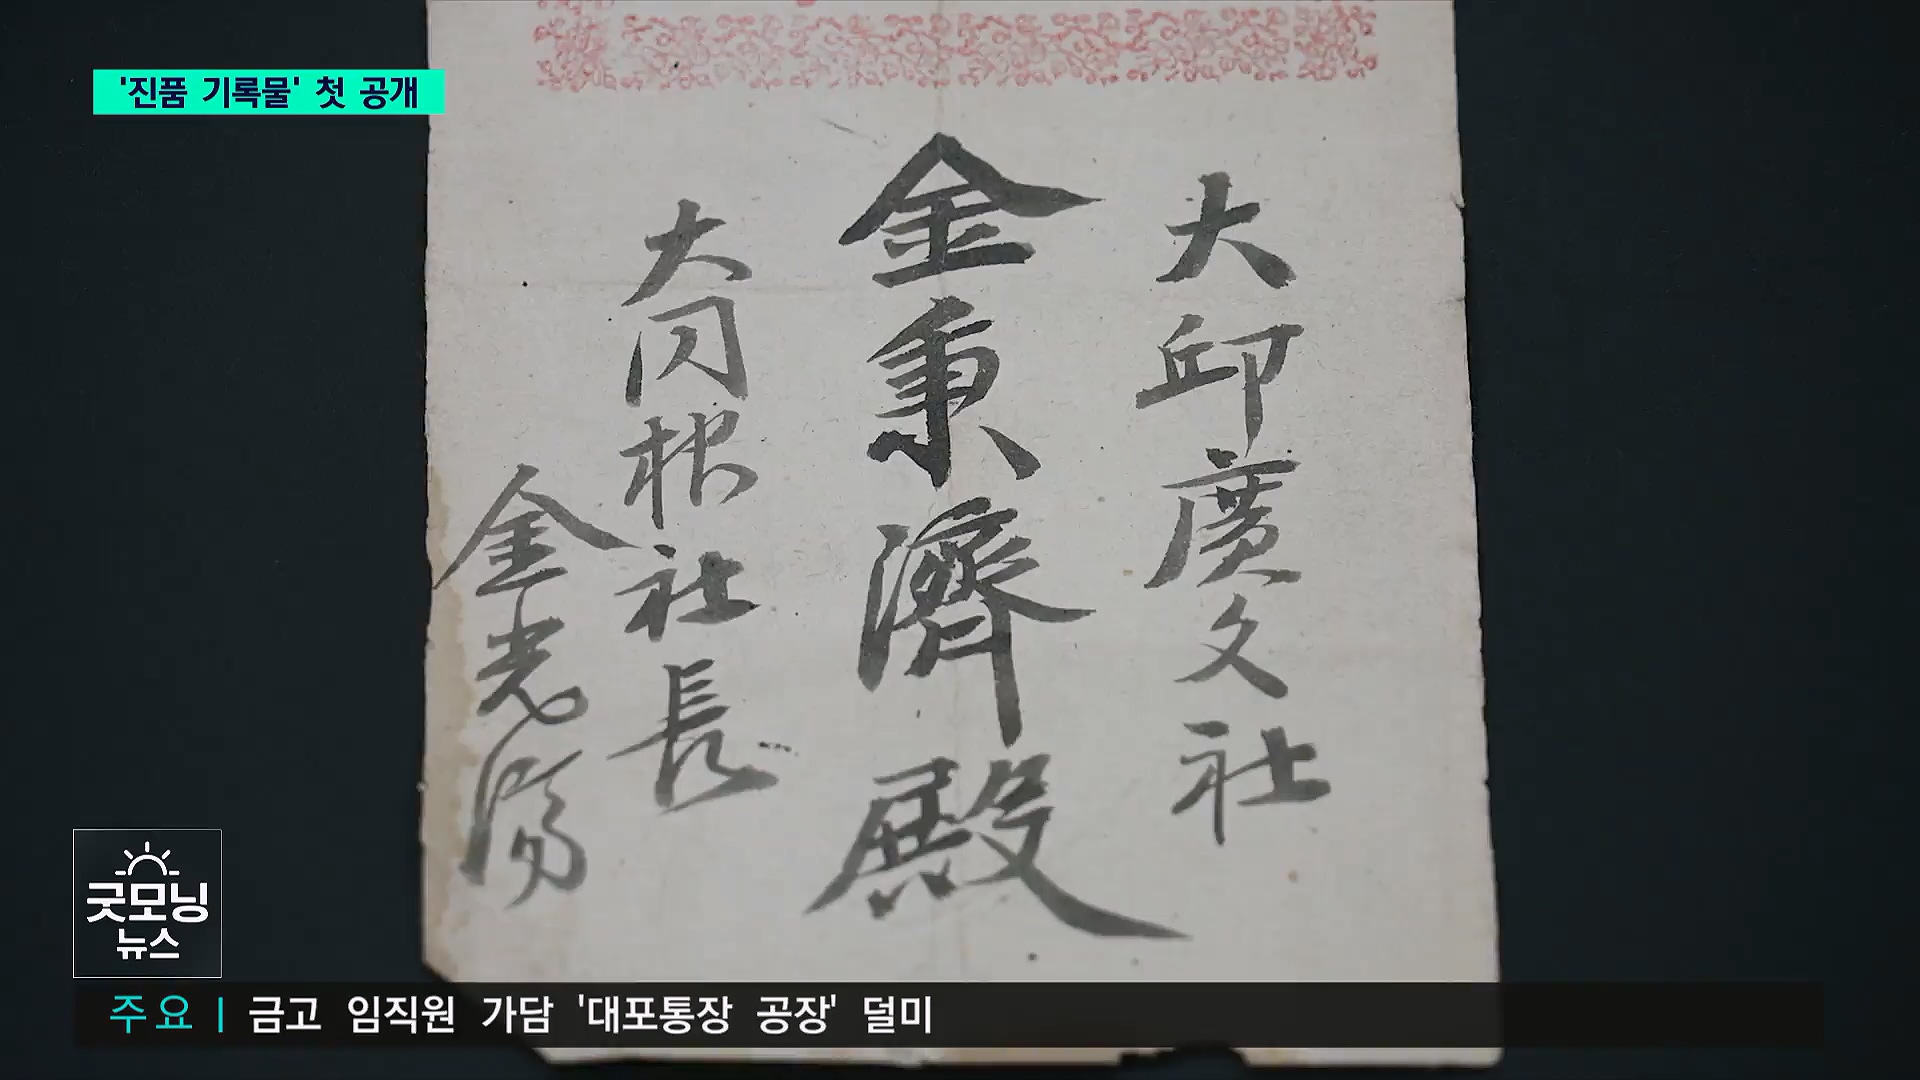 '진품 기록물' 첫 공개
大邱廣文社
金秉濟殿
大同根社長
金光濟
굿모닝
뉴스
주요 | 금고 임직원 가담 '대포통장 공장' 덜미